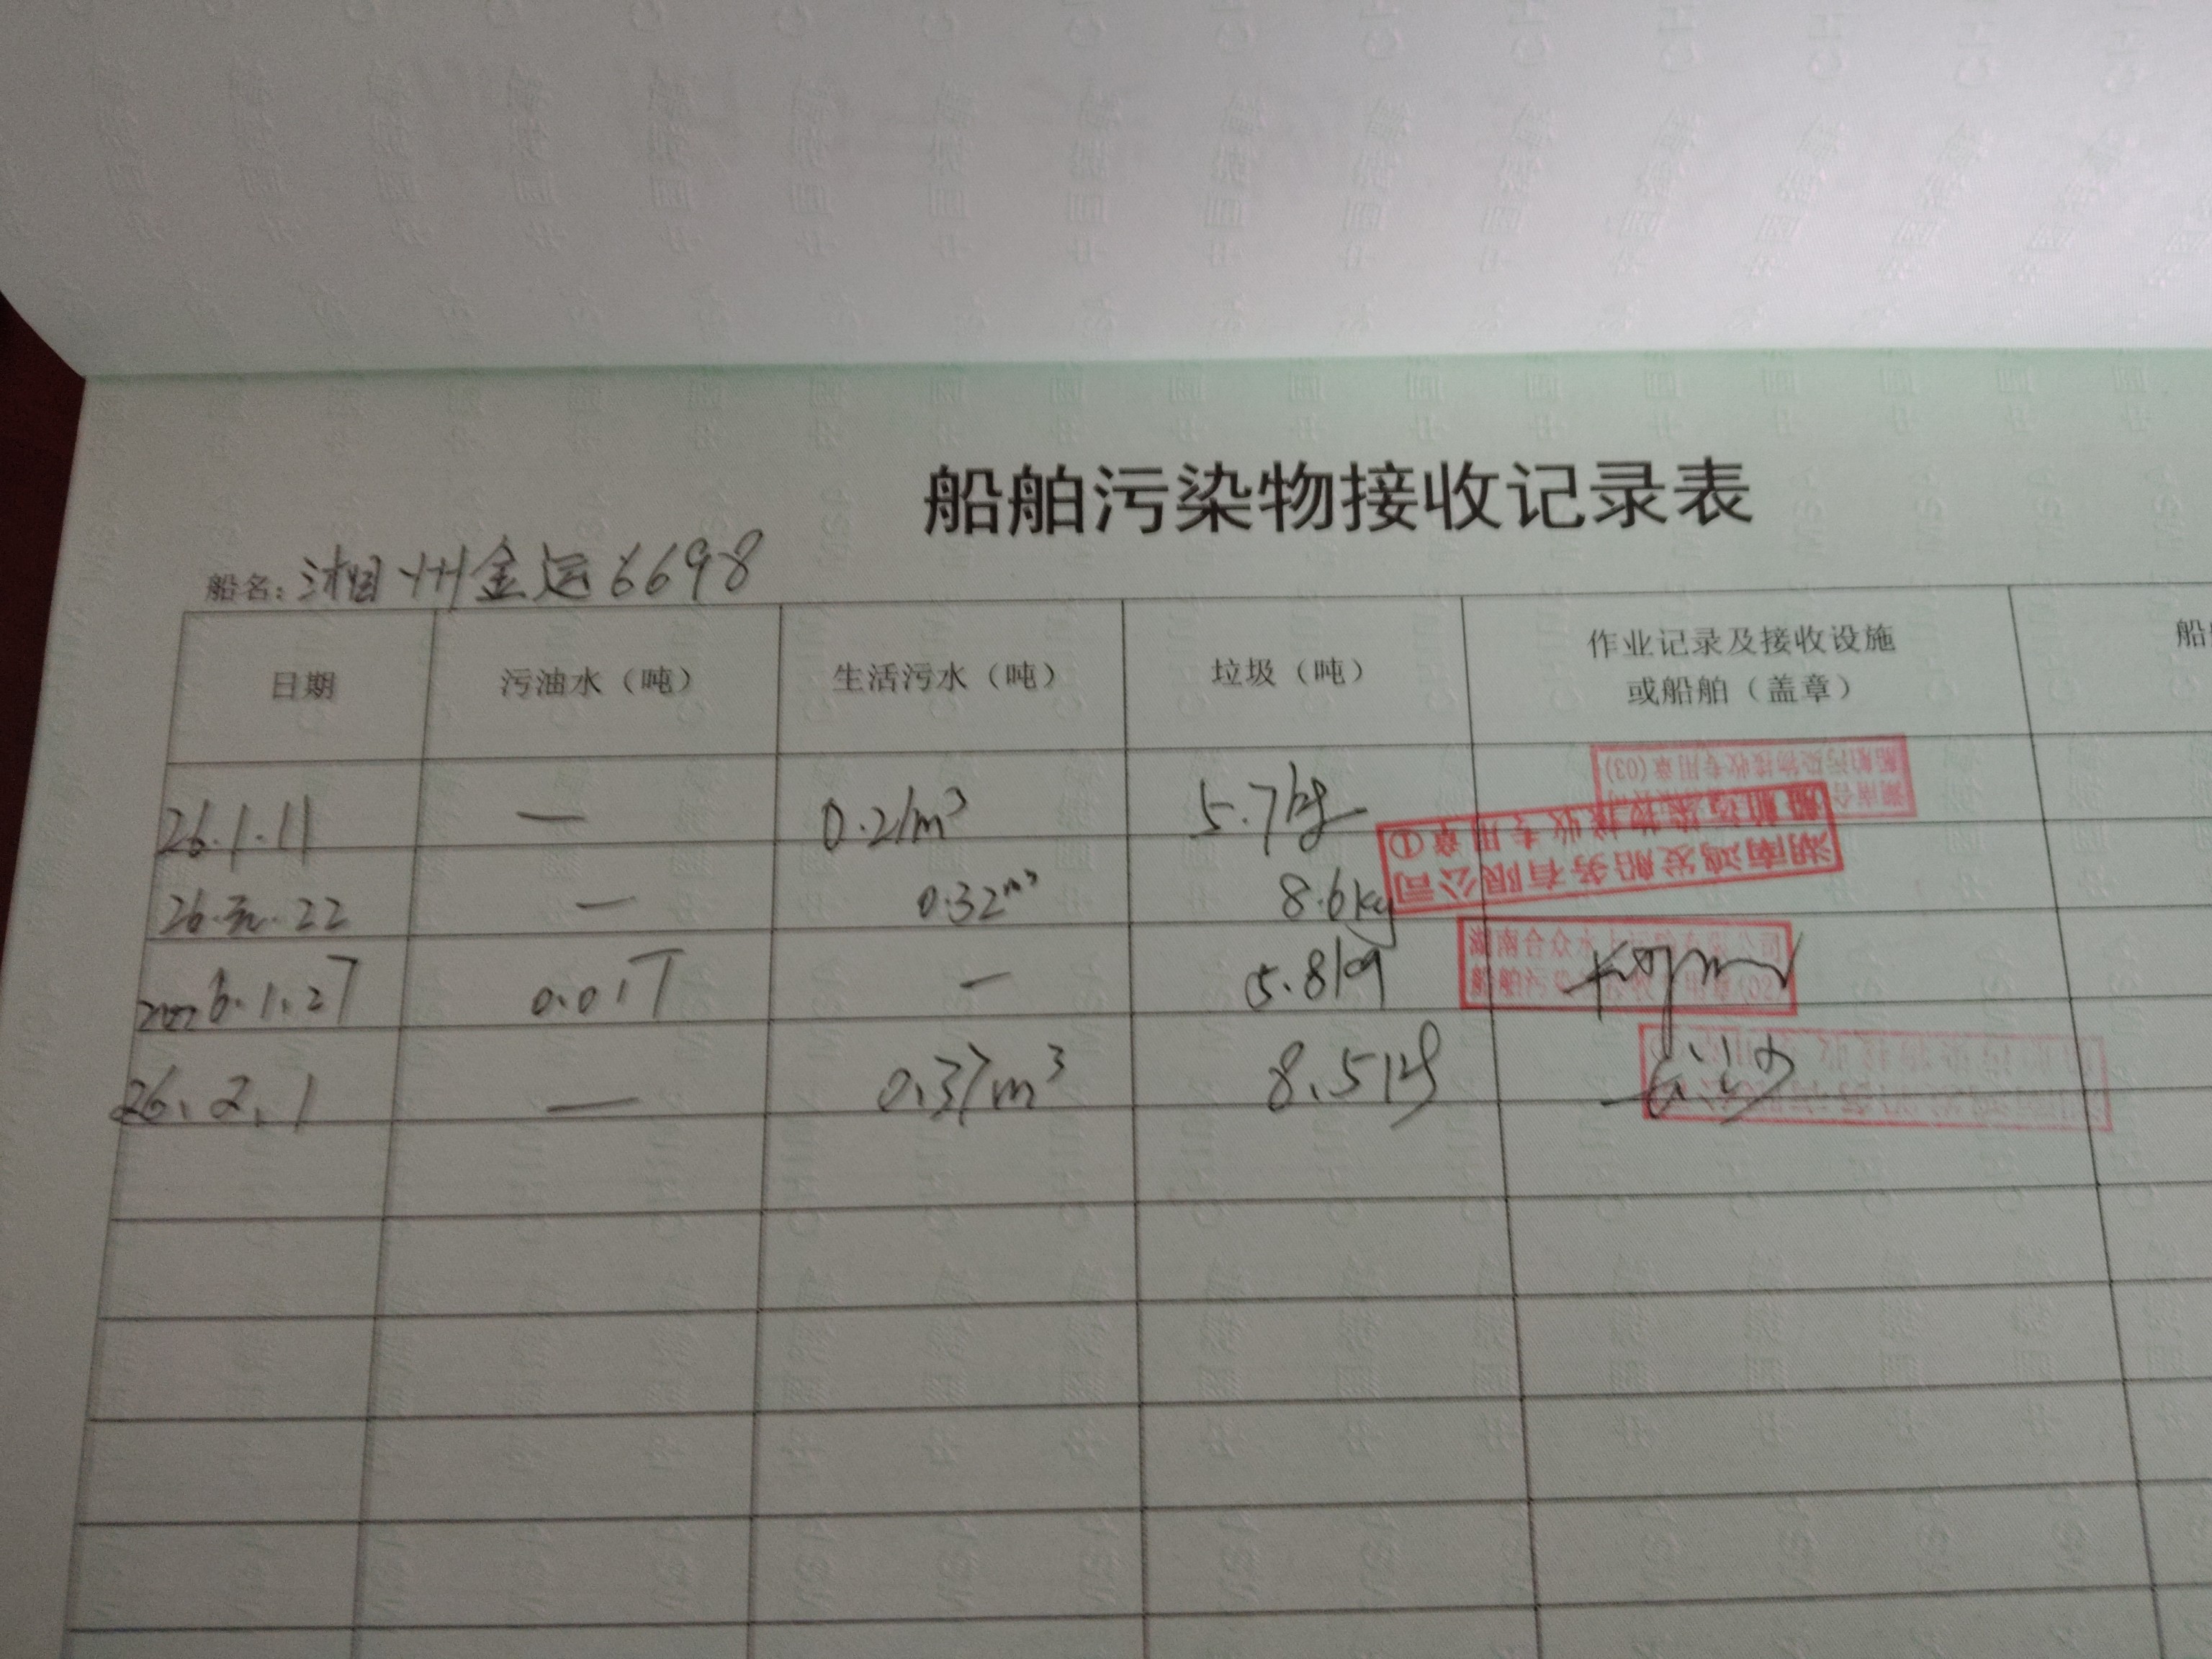 船舶污染物接收记录表
船名：湘州金运6698
日期 污油水（吨） 生活污水（吨） 垃圾（吨） 作业记录及接收设施或船舶（盖章） 船
26.1.11 — 0.21m³ 5.7kg
湖南合
船舶污染物接收专用章(03)
26.元.22 — 0.32m³ 8.6kg
湖南鸿发船务有限公司
船舶污染物接收专用章①
6.1.27 0.01T — 5.8kg
湖南合众水上
船舶污染 用章(02)
26.2.1 — 0.37m³ 8.5kg